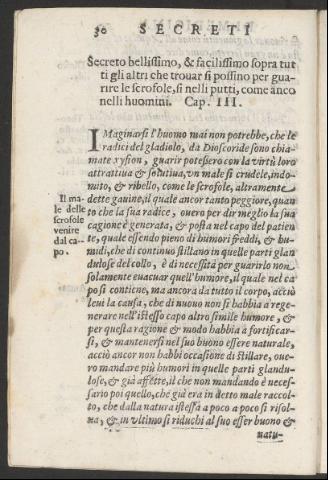 30 SECRETI
Secreto bellissimo, & facilissimo sopra tut
ti gli altri che trouar si possino per gua-
rire le scrofole, si nelli putti, come anco
nelli huomini. Cap. III.
IMaginarsi l'huomo mai non potrebbe, che le
radici del gladiolo, da Dioscoride sono chia-
mate xyfion, guarir potessero con la virtù loro
attrattiua & solutiua, vn male sì crudele, indo-
mito, & ribello, come le scrofole, altramente
dette gauine, il quale ancor tanto peggiore, quan
to che la sua radice, ouero per dir meglio la sua
cagione è generata, & posta nel capo del patien
te, quale essendo pieno di humori freddi, & hu-
midi, che di continuo stillano in quelle parti glan
dulose del collo, è di necessità per guarirlo non
solamente euacuar quell'humore, il quale nel ca
po si contiene, ma ancora da tutto il corpo, acciò
leui la causa, che di nuouo non si habbia a rege-
nerare nell'istesso capo altro simile humore, &
per questa ragione & modo habbia à fortificar-
si, & mantenersi nel suo buono essere naturale,
acciò ancor non habbi occasione di stillare, oue-
ro mandare più humori in quelle parti glandu-
lose, & già affette, il che non mandando è neces-
sario poi quello, che già era in detto male raccol-
to, che dalla natura istessa a poco a poco si risol-
ua, & in vltimo si riduchi al suo esser buono &
natu-
Il ma-
le delle
scrofole
venire
dal ca-
po.